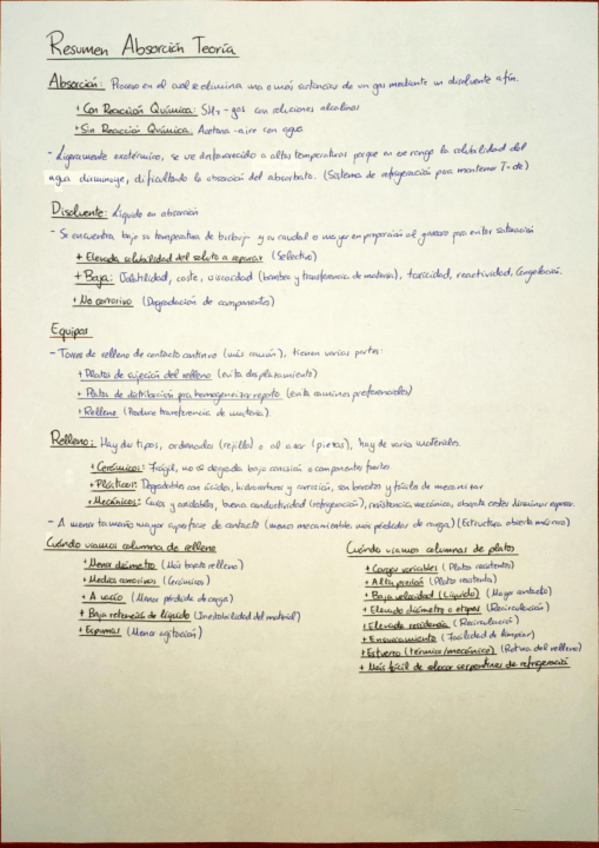 Resumen Absorción Teoría
Absorción: Proceso en el cual se elimina una o más sustancias de un gas mediante un disolvente afín.
+ Con Reacción Química: SH₂-gas con soluciones alcalinas
+ Sin Reacción Química: Acetona-aire con agua
- Ligeramente exotérmico, se ve desfavorecido a altas temperaturas porque en ese rango la solubilidad del
agua disminuye, dificultando la absorción del absorbato. (Sistema de refrigeración para mantener T=cte)
Disolvente: Líquido en absorción
- Se encuentra bajo su temperatura de burbuja y su caudal o mayor en proporción al gaseoso para evitar saturación
+ Elevada solubilidad del soluto a separar (Selectivo)
+ Baja: Volatilidad, coste, viscosidad (bombeo y transferencia de materia), toxicidad, reactividad, Congelación.
+ No corrosivo (Degradación de componentes)
Equipos
- Torres de relleno de contacto continuo (más común), tienen varias partes:
+ Platos de sujeción del relleno (evita desplazamiento)
+ Platos de distribución para homogeneizar reparto (evita caminos preferenciales)
+ Relleno (Produce transferencia de materia).
Relleno: Hay dos tipos, ordenados (rejilla) o al azar (piezas), hay de varios materiales.
+ Cerámicos: Frágil, no se degrada bajo corrosión o componentes fuertes
+ Plásticos: Degradables con ácidos, hidrocarburos y corrosión, son baratos y fáciles de mecanizar
+ Mecánicos: Caros y oxidables, buena conductividad (refrigeración), resistencia mecánica, abarata costes disminuir espesor.
- A menor tamaño mayor superficie de contacto (menos mecanizable, más pérdidas de carga) (Estructura abierta más rico)
Cuándo usamos columna de relleno
+ Menor diámetro (Más barato relleno)
+ Medios corrosivos (Cerámicos)
+ A vacío (Menor pérdida de carga)
+ Baja retención de líquido (Inestabilidad del material)
+ Espumas (Menor agitación)
Cuándo usamos columnas de platos
+ Cargas variables (Platos resistentes)
+ Alta presión (Platos resistente)
+ Baja velocidad (Líquido) (Mayor contacto)
+ Elevado diámetro o etapas (Recirculación)
+ Elevada residencia (Recirculación)
+ Ensuciamiento (Facilidad de limpiar)
+ Esfuerzo (térmico/mecánico) (Rotura del relleno)
+ Más fácil de colocar serpentines de refrigeración